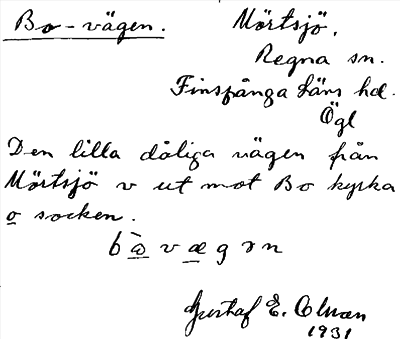 Bo-vägen. Mörtsjö.
Regna sn.
Finspånga Läns hd.
Ögl
Den lilla dåliga vägen från
Mörtsjö v ut mot Bo kyrka
o socken.
Gustaf E.
1931